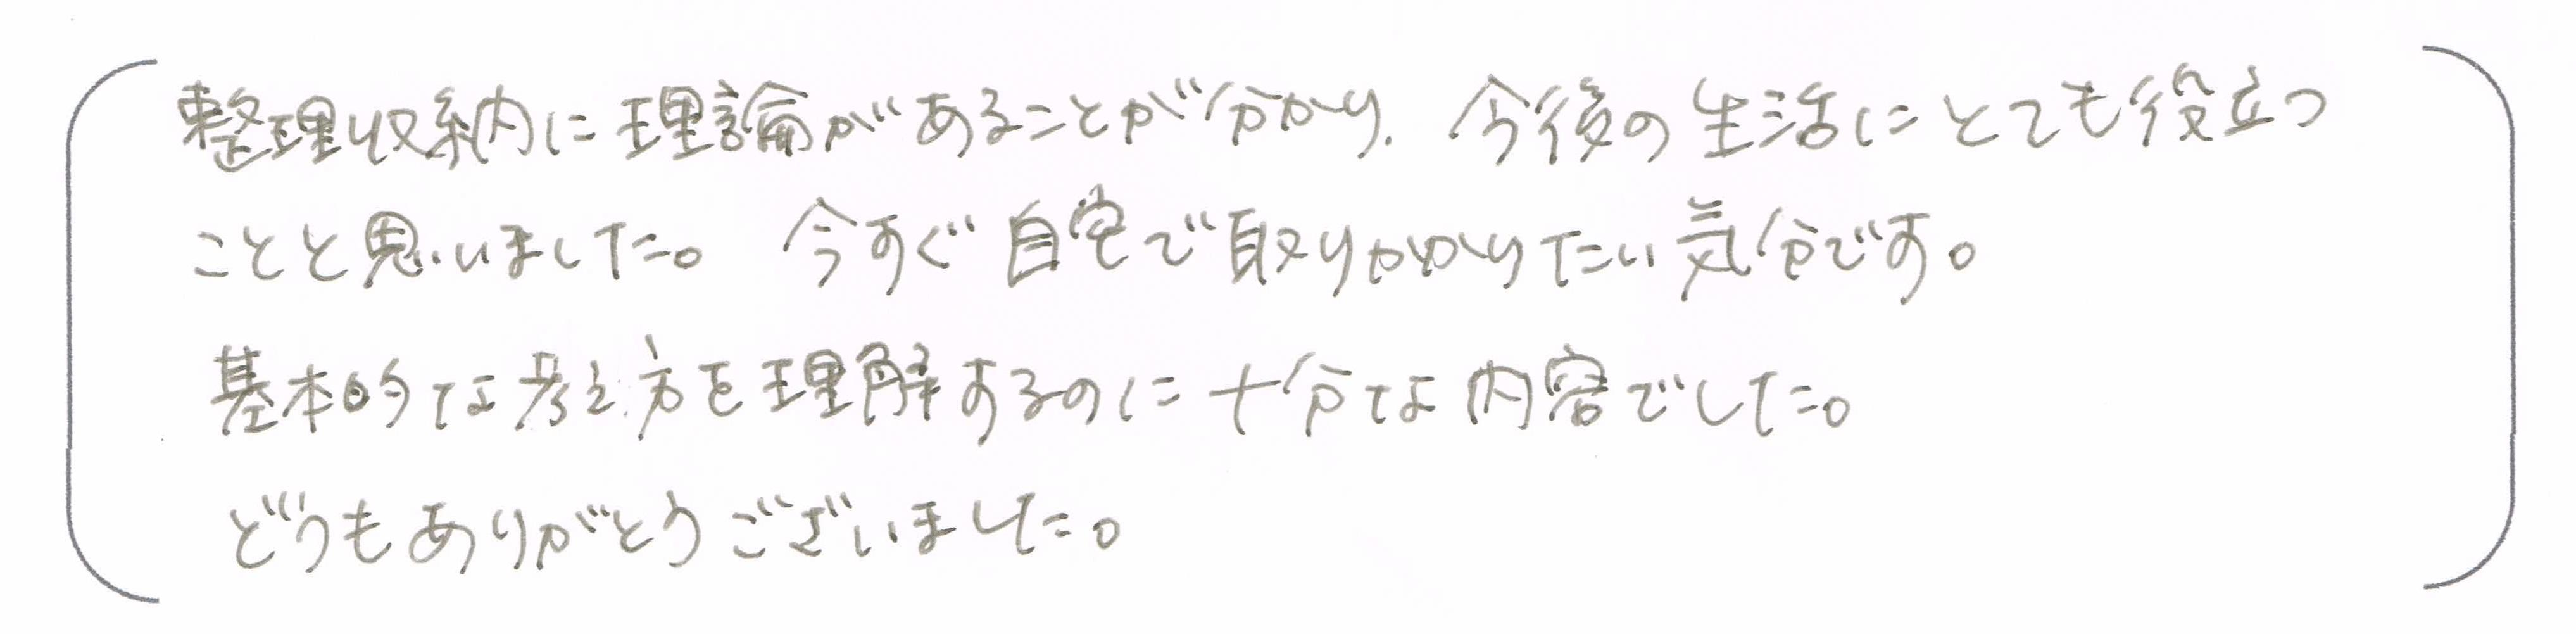 整理収納に理論があることが分かり、今後の生活にとても役立つ
ことと思いました。今すぐ自宅で取りかかりたい気分です。
基本的な考え方を理解するのに十分な内容でした。
どうもありがとうございました。